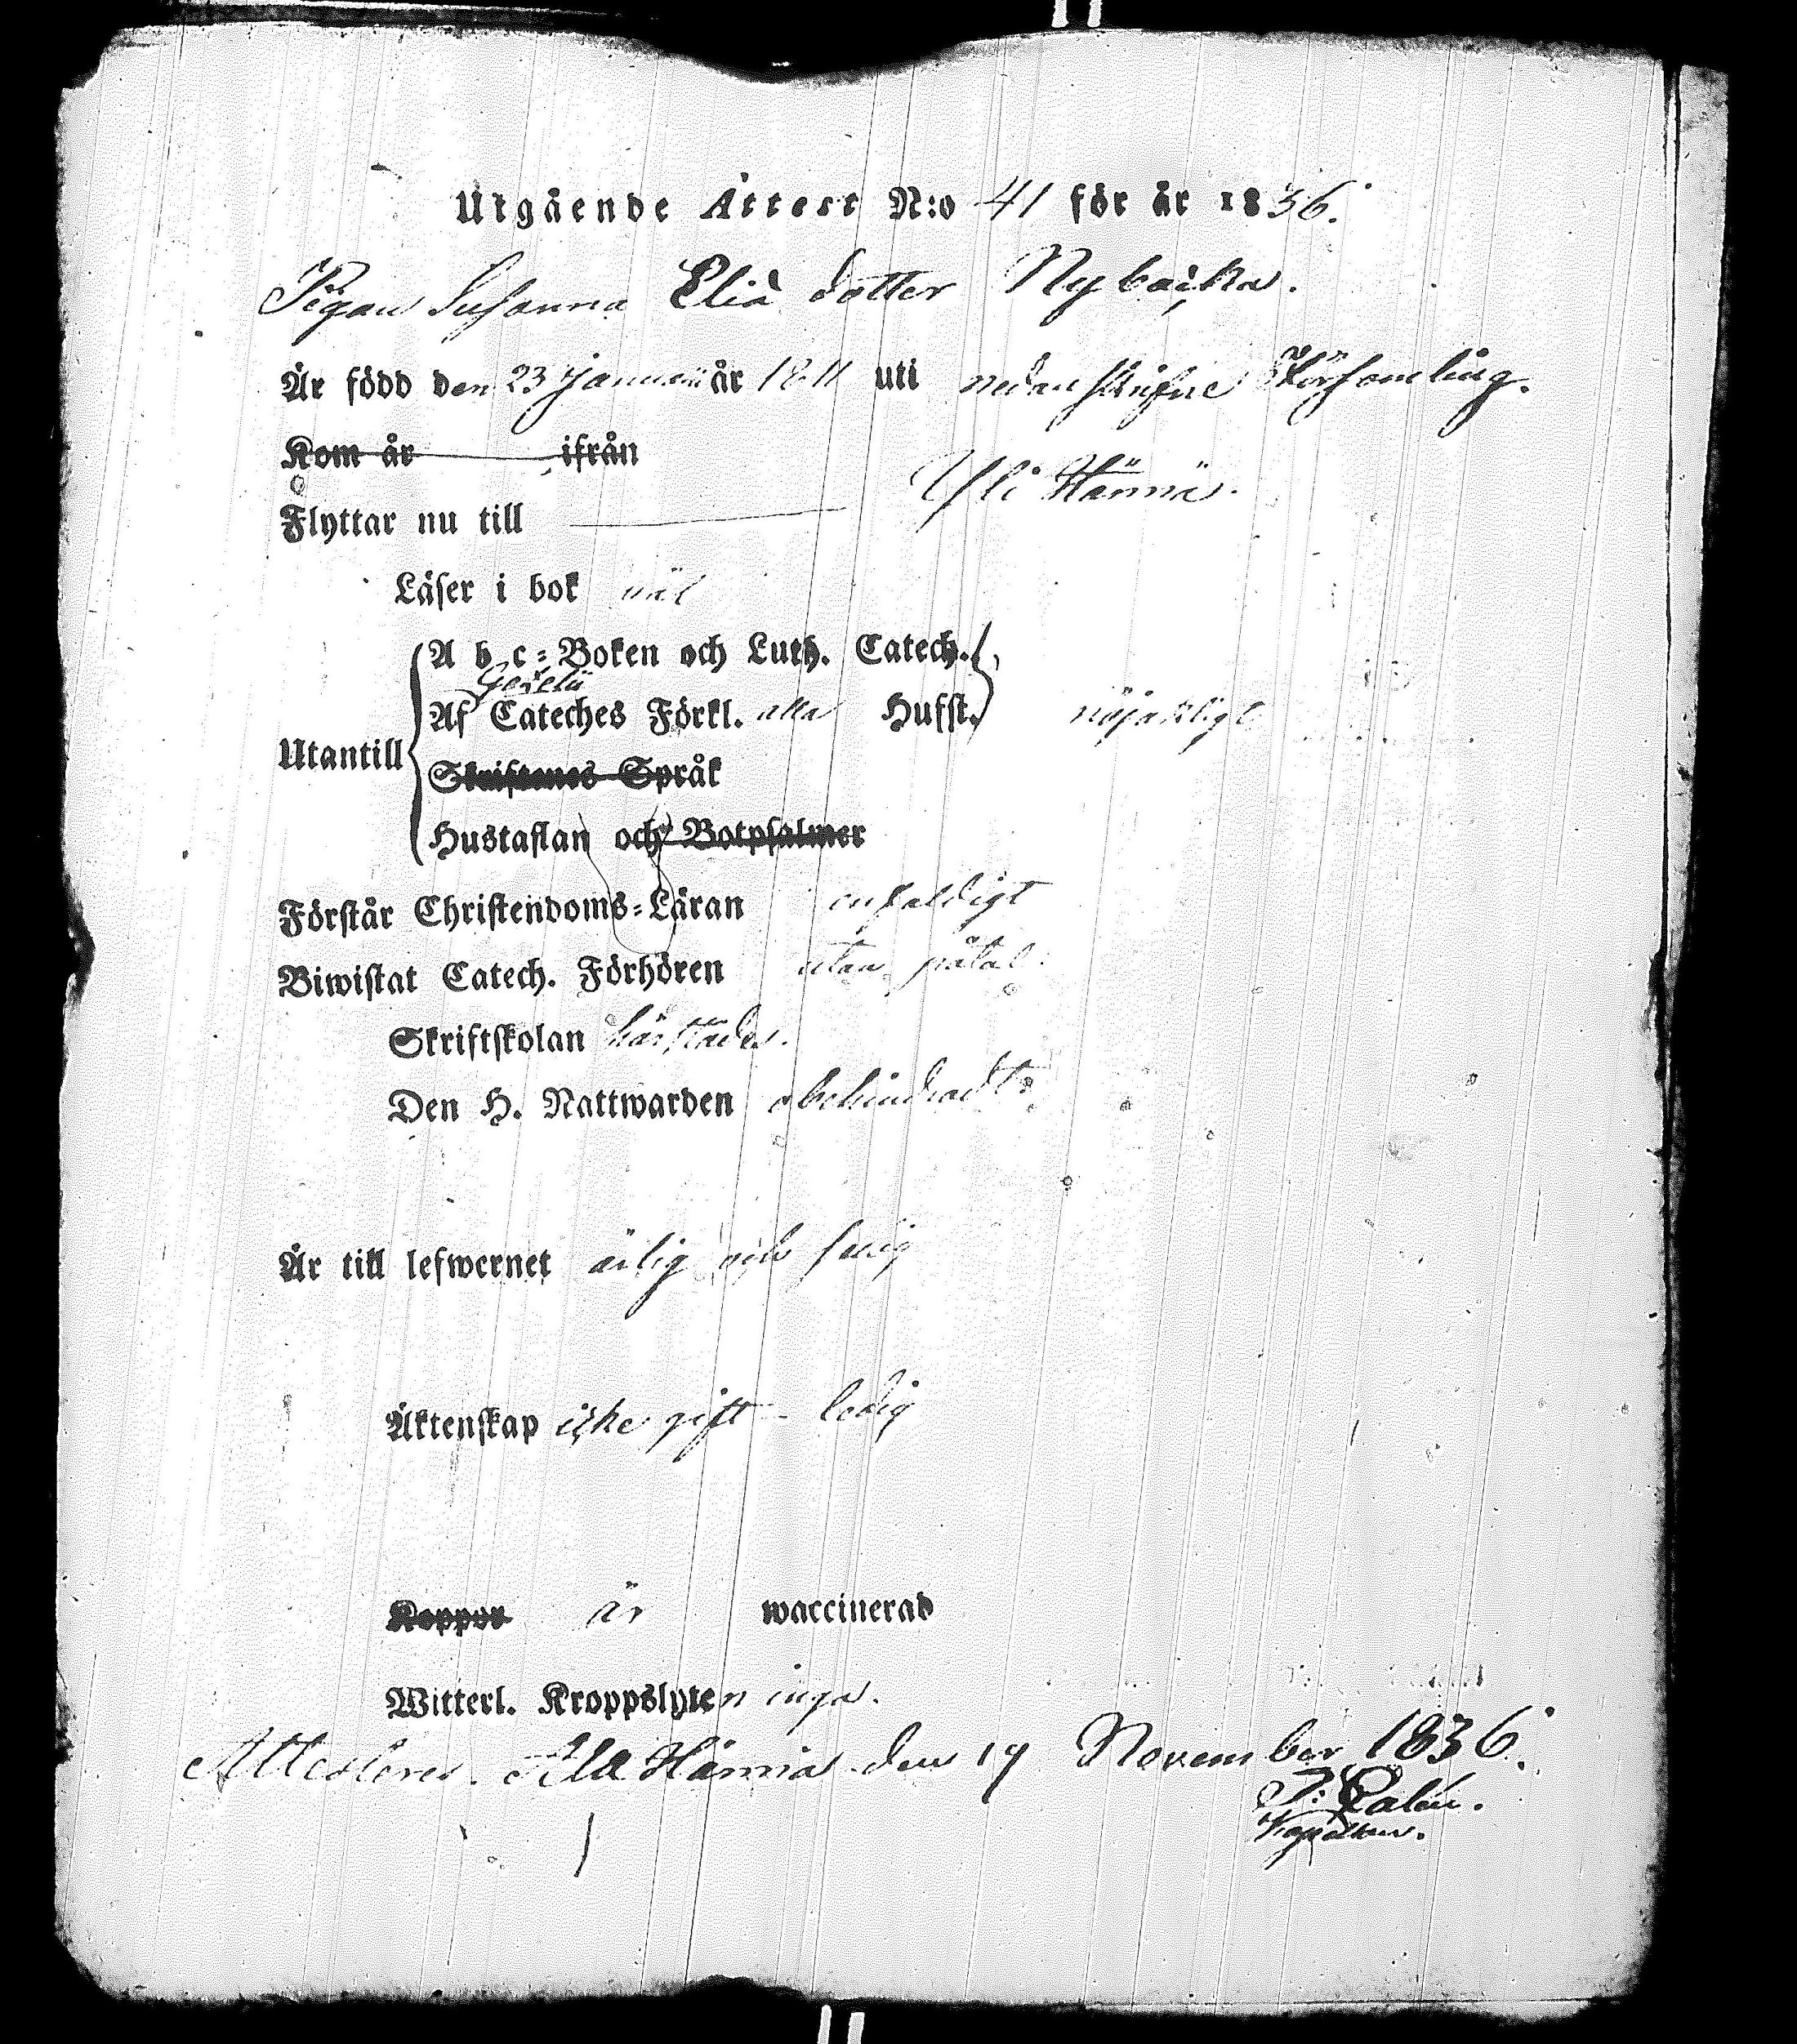 Utgående Attest N:o 41 för år 1836.
Pigan Susanna Eliä dotter Nybacka.
Är född den 23 Januarii år 1811 uti nedanskrifne Församling.
Kom år ifrån
Flyttar nu till Yli Härmä.
Läser i bok väl
A b c-Boken och Luth. Catech.
Gezelii
Af Cateches Förkl. alla Hufst. nöjaktligt
Utantill
Skriftenes Språk
Hustaflan och Botpsalmer
Förstår Christendoms-Läran enfaldigt
Biwistat Catech. Förhören utan påtal.
Skriftskolan härstädes.
Den H. Nattwarden obehindradt
Är till lefwernet ärlig och
Äktenskap icke gift - ledig
Koppor är waccinerad
Witterl. Kroppslyten inga.
Attesterer. Ala Härmä den 19 November 1836.